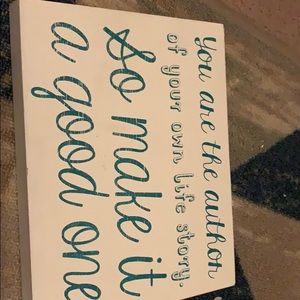 You are the author
of your own life story,
So make it
a good one